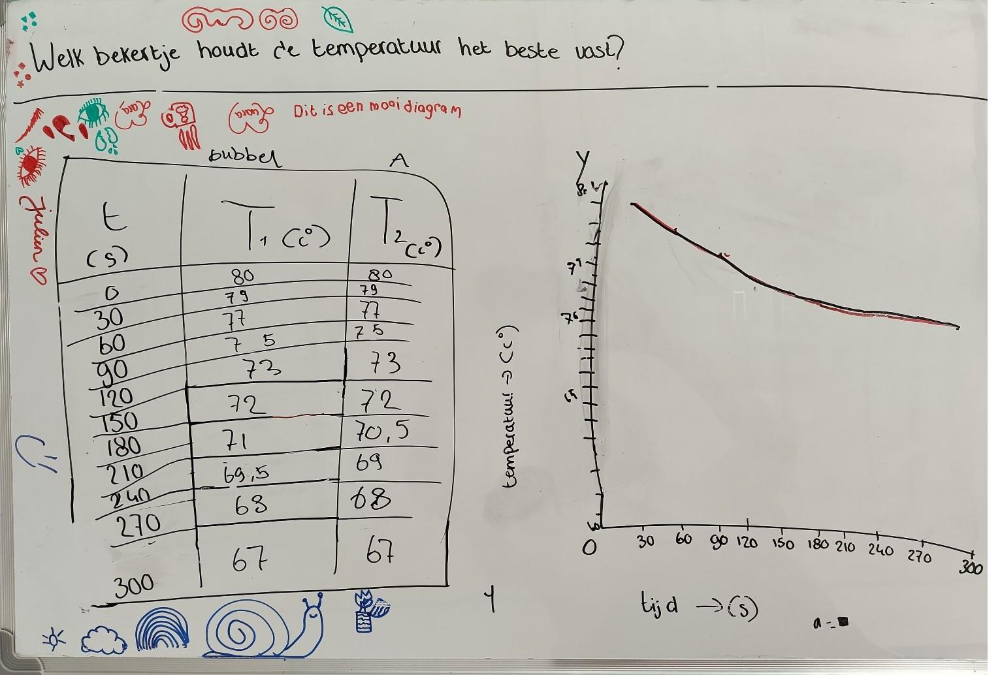 Welk bekertje houdt de temperatuur het beste vast?
Dit is een mooi diagram
Julien
bubbel A
t (s) T₁ (c°) T₂ (c°)
0 80 80
30 79 79
60 77 77
90 75 75
120 73 73
150 72 72
180 71 70,5
210 69,5 69
240 68 68
270 67 67
300
y
temperatuur → (c°)
0 30 60 90 120 150 180 210 240 270 300
tijd → (s)